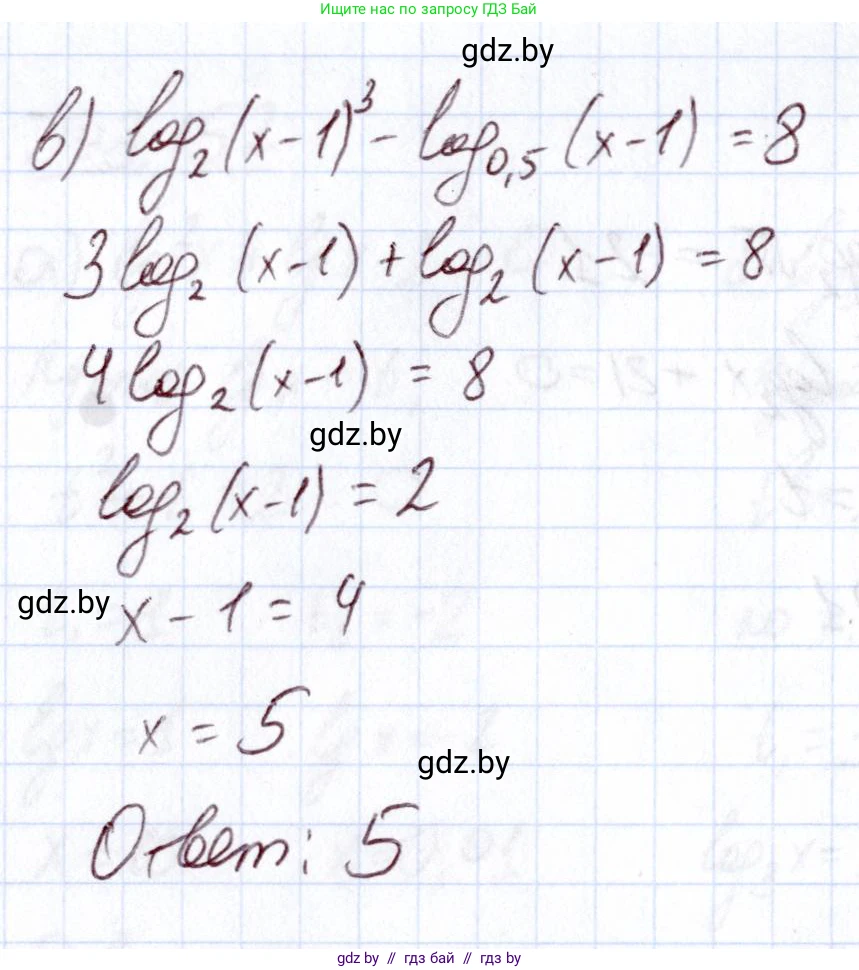 Ищите нас по запросу ГДЗ Бай
gdz.by
в) log₂(x-1)³ - log₀,₅(x-1) = 8
3log₂(x-1) + log₂(x-1) = 8
4log₂(x-1) = 8
gdz.by
log₂(x-1) = 2
gdz.by
x - 1 = 4
x = 5
gdz.by
Ответ: 5
gdz.by // гдз бай // gdz.by